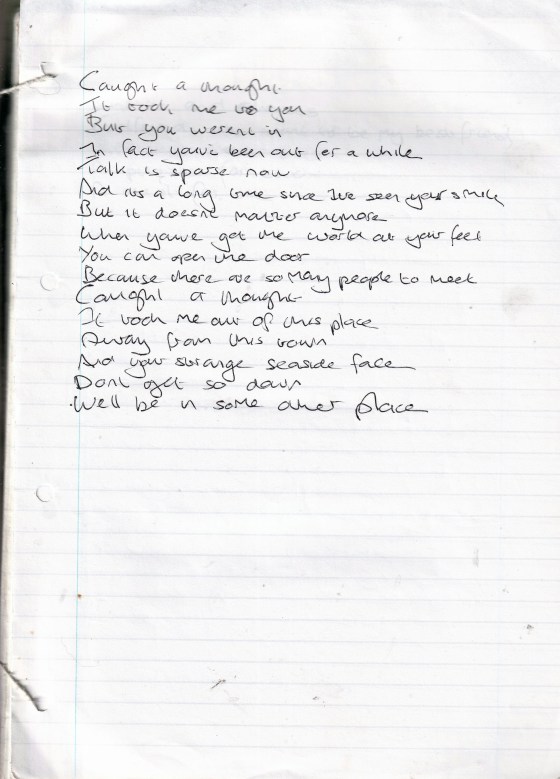 Caught a thought
It took me to you
But you weren't in
In fact you've been out for a while
Talk is sparse now
And its a long time since I've seen your smile
But it doesn't matter anymore
When you've got the world at your feet
You can open the door
Because there are so many people to meet
Caught a thought
It took me out of this place
Away from this town
And your strange seaside face
Dont get so down
We'll be in some other place